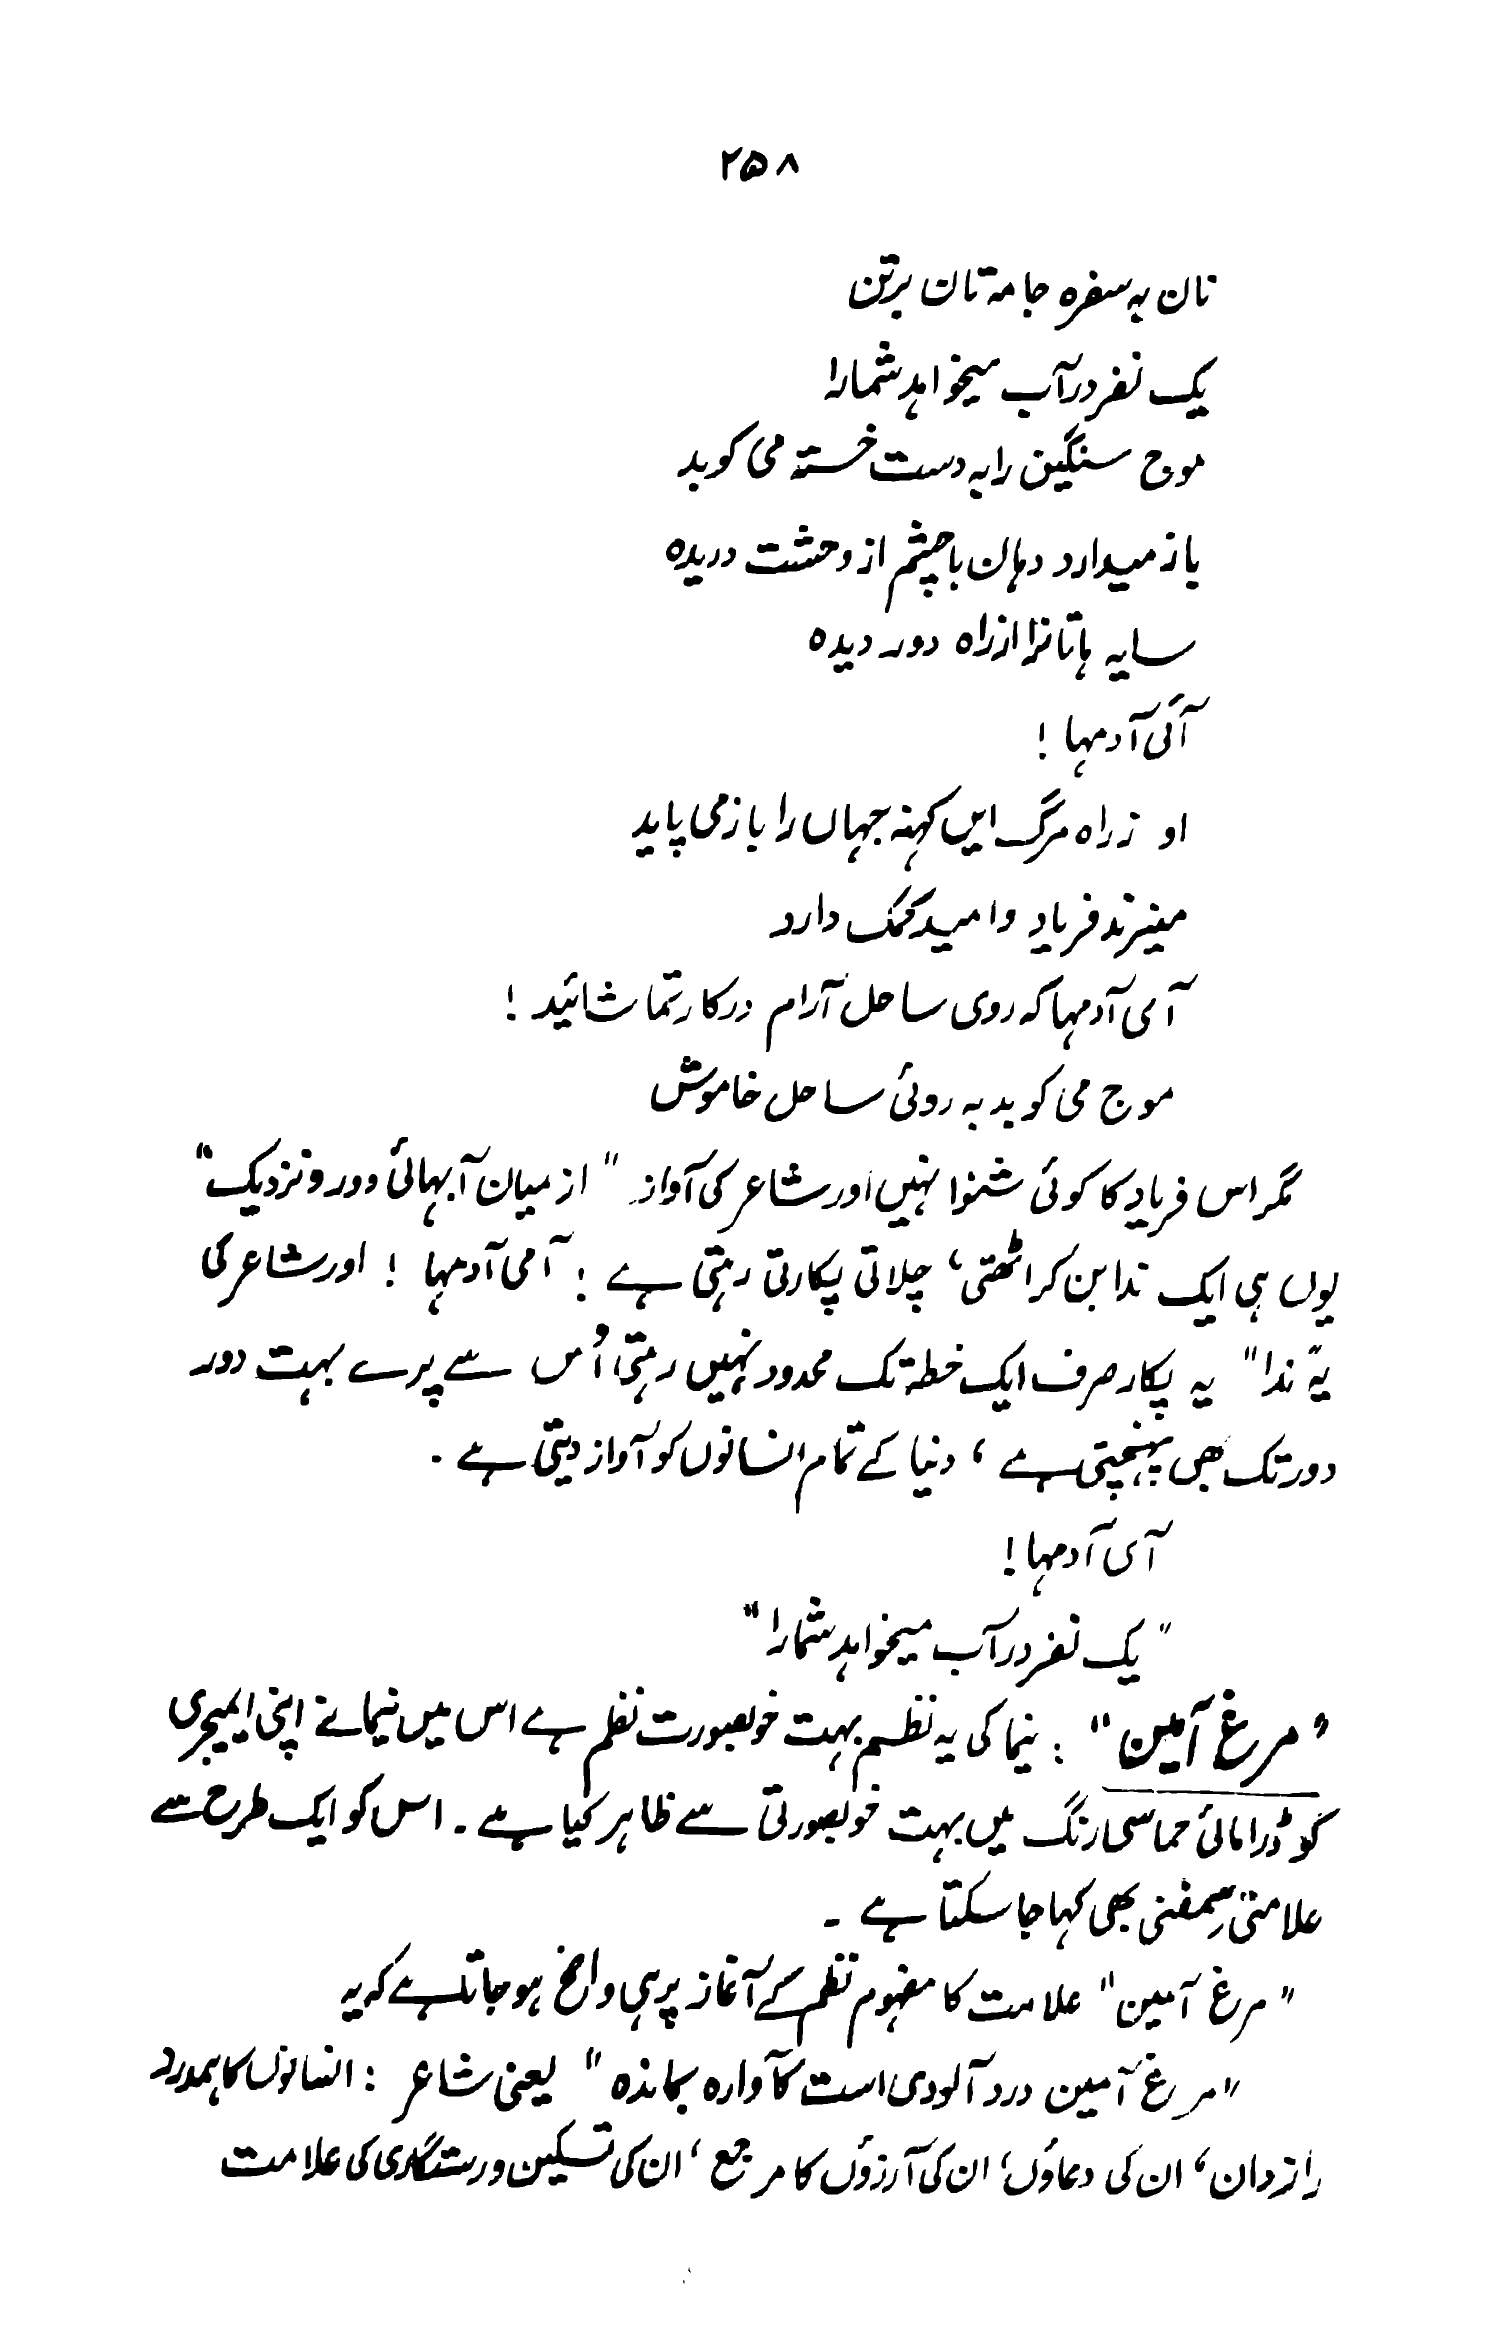 ۲۵۸
نان به سفره جامه تان برتن
یک نفر در آب میخواهد شما را
موج سنگین را به دست خسته می کوبد
باز میدارد دہان با چشم از وحشت دریده
سایه ہاتانرا از راه دور دیده
آئی آدمہا !
او زراه مرگ این کہنہ جہاں را باز می پاید
میزند فریاد و امید کمک دارد
آی آدمہا کہ روی ساحل آرام درکار تماشائید !
موج می کوبد به روئی ساحل خاموش
مگر اس فریاد کا کوئی شنوا نہیں اور شاعر کی آواز " از میان آبہائی دور و نزدیک "
یوں ہی ایک ندا بن کر اٹھتی، چلاتی پکارتی رہتی ہے : آمی آدمہا ! اور شاعر کی
یہ " ندا " یہ پکار صرف ایک خطہ تک محدود نہیں رہتی اُس سے پرے بہت دور
دور تک بھی پہنچتی ہے ، دنیا کے تمام انسانوں کو آواز دیتی ہے ۔
آی آدمہا !
" یک نفر در آب میخواہد شما را "
" مرغ آمین " : نیما کی یہ نظم بہت خوبصورت نظم ہے اس میں نیما نے اپنی ایمیجری
کو ڈرامائی حماسی رنگ میں بہت خوبصورتی سے ظاہر کیا ہے ۔ اس کو ایک طرح سے
علامتی سمفنی بھی کہا جا سکتا ہے ۔
" مرغ آمین " علامت کا مفہوم نظم کے آغاز پر ہی واضح ہو جاتا ہے کہ یہ
" مرغ آمین درد آلودی است کآوارہ بماندہ " یعنی شاعر : انسانوں کا ہمدرد
رازدان ، ان کی دعاؤں ، ان کی آرزوؤں کا مرجع ، ان کی تسکین و رستگاری کی علامت